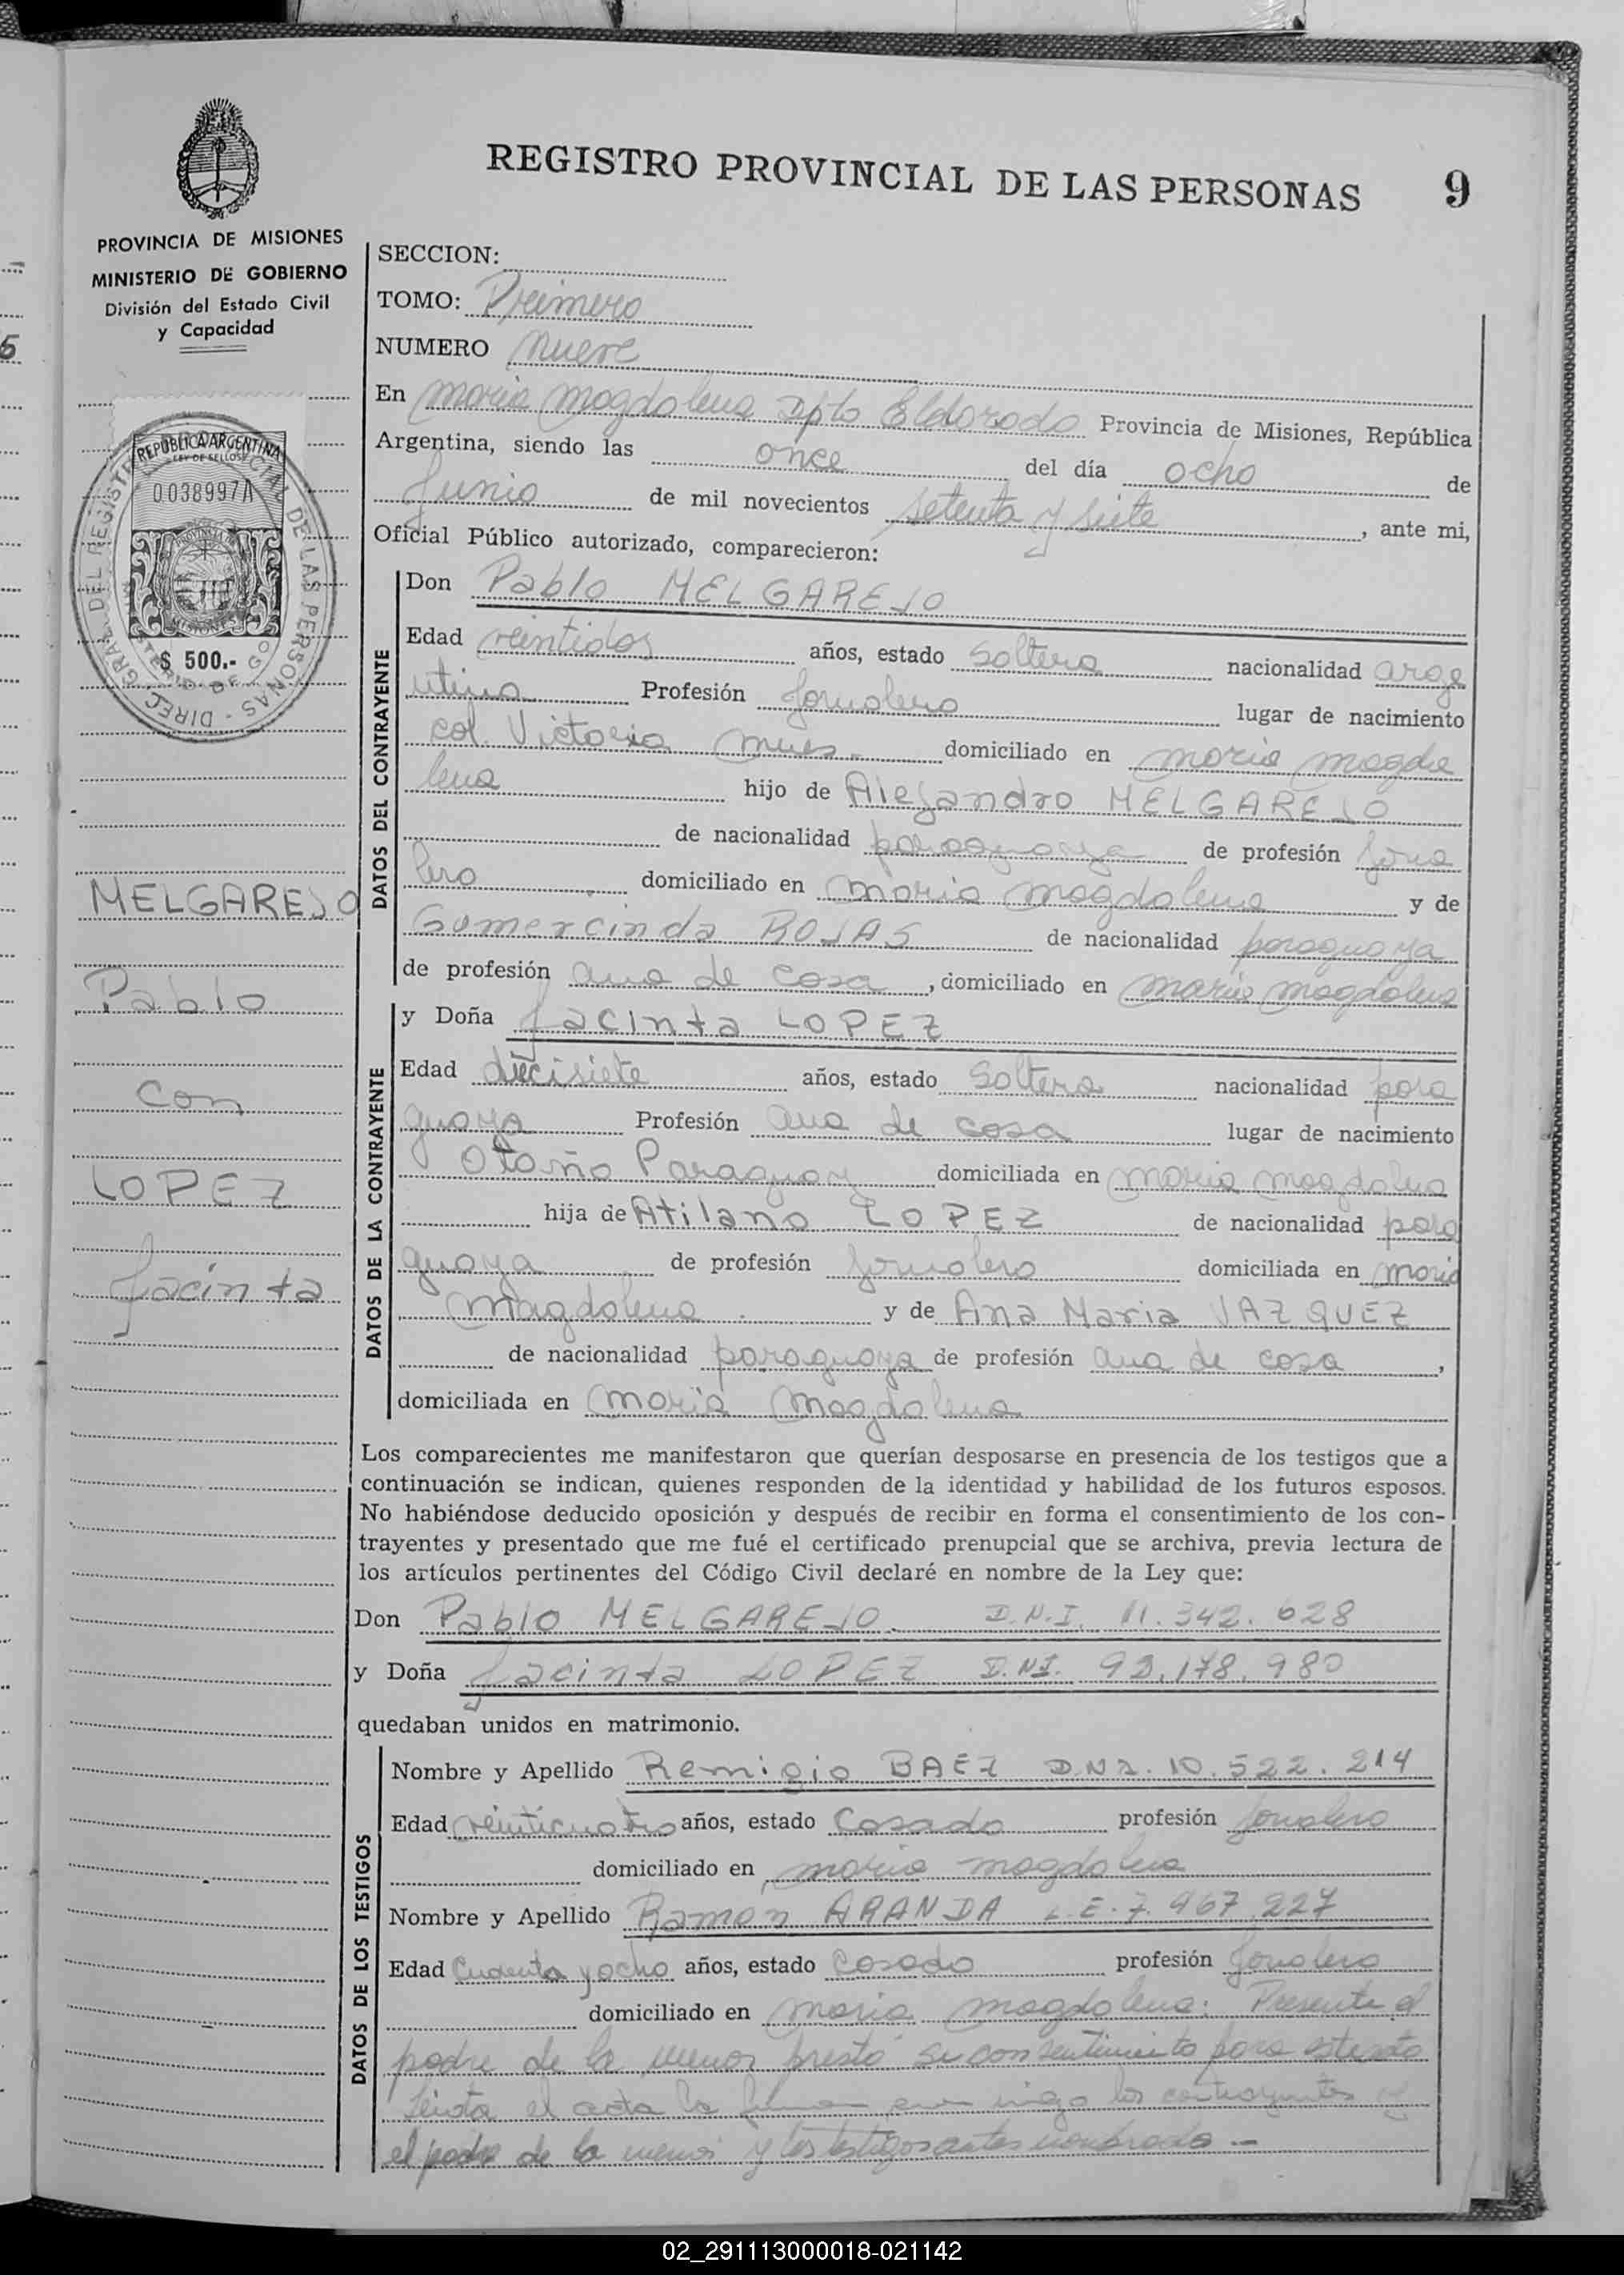 REGISTRO PROVINCIAL DE LAS PERSONAS 9
PROVINCIA DE MISIONES
MINISTERIO DE GOBIERNO
División del Estado Civil
y Capacidad
REPUBLICA ARGENTINA
LEY DE SELLOS
0038997A
PROVINCIA
MISIONES
$ 500.-
DIREC. GRAL. DEL REGISTRO PROVINCIAL DE LAS PERSONAS
MELGAREJO
Pablo
con
LOPEZ
Jacinta
SECCION:
TOMO: Primero
NUMERO nueve
En Maria Magdalena Dpto Eldorado Provincia de Misiones, República
Argentina, siendo las once del día ocho de
Junio de mil novecientos setenta y siete, ante mi,
Oficial Público autorizado, comparecieron:
DATOS DEL CONTRAYENTE
Don Pablo MELGAREJO
Edad veintidos años, estado soltero nacionalidad arge
ntina Profesión Jornalero lugar de nacimiento
col. Victoria Mnes. domiciliado en Maria Magda
lena hijo de Alejandro MELGAREJO
de nacionalidad paraguaya de profesión Jorna
lero domiciliado en Maria Magdalena y de
Gumercinda ROJAS de nacionalidad paraguaya
de profesión ama de casa, domiciliado en Maria Magdalena
DATOS DE LA CONTRAYENTE
y Doña Jacinta LOPEZ
Edad diecisiete años, estado soltera nacionalidad para
guaya Profesión ama de casa lugar de nacimiento
Otaño Paraguay domiciliada en Maria Magdalena
hija de Atilano LOPEZ de nacionalidad para
guaya de profesión Jornalero domiciliada en Maria
Magdalena y de Ana Maria VAZQUEZ
de nacionalidad paraguaya de profesión ama de casa,
domiciliada en Maria Magdalena
Los comparecientes me manifestaron que querían desposarse en presencia de los testigos que a
continuación se indican, quienes responden de la identidad y habilidad de los futuros esposos.
No habiéndose deducido oposición y después de recibir en forma el consentimiento de los con-
trayentes y presentado que me fué el certificado prenupcial que se archiva, previa lectura de
los artículos pertinentes del Código Civil declaré en nombre de la Ley que:
Don Pablo MELGAREJO D.N.I. 11.342.628
y Doña Jacinta LOPEZ D.N.I. 92.178.980
quedaban unidos en matrimonio.
DATOS DE LOS TESTIGOS
Nombre y Apellido Remigio BAEZ D.N.I. 10.522.214
Edad veinticuatro años, estado Casado profesión Jornalero
domiciliado en Maria Magdalena
Nombre y Apellido Ramon ARANDA L.E. 7.967.227
Edad Cuarenta y ocho años, estado Casado profesión Jornalero
domiciliado en Maria Magdalena. Presente el
padre de la menor prestó su consentimiento para este acto
Leida el acta la firman los contrayentes
el padre de la menor y los testigos antes nombrados.-
02_291113000018-021142